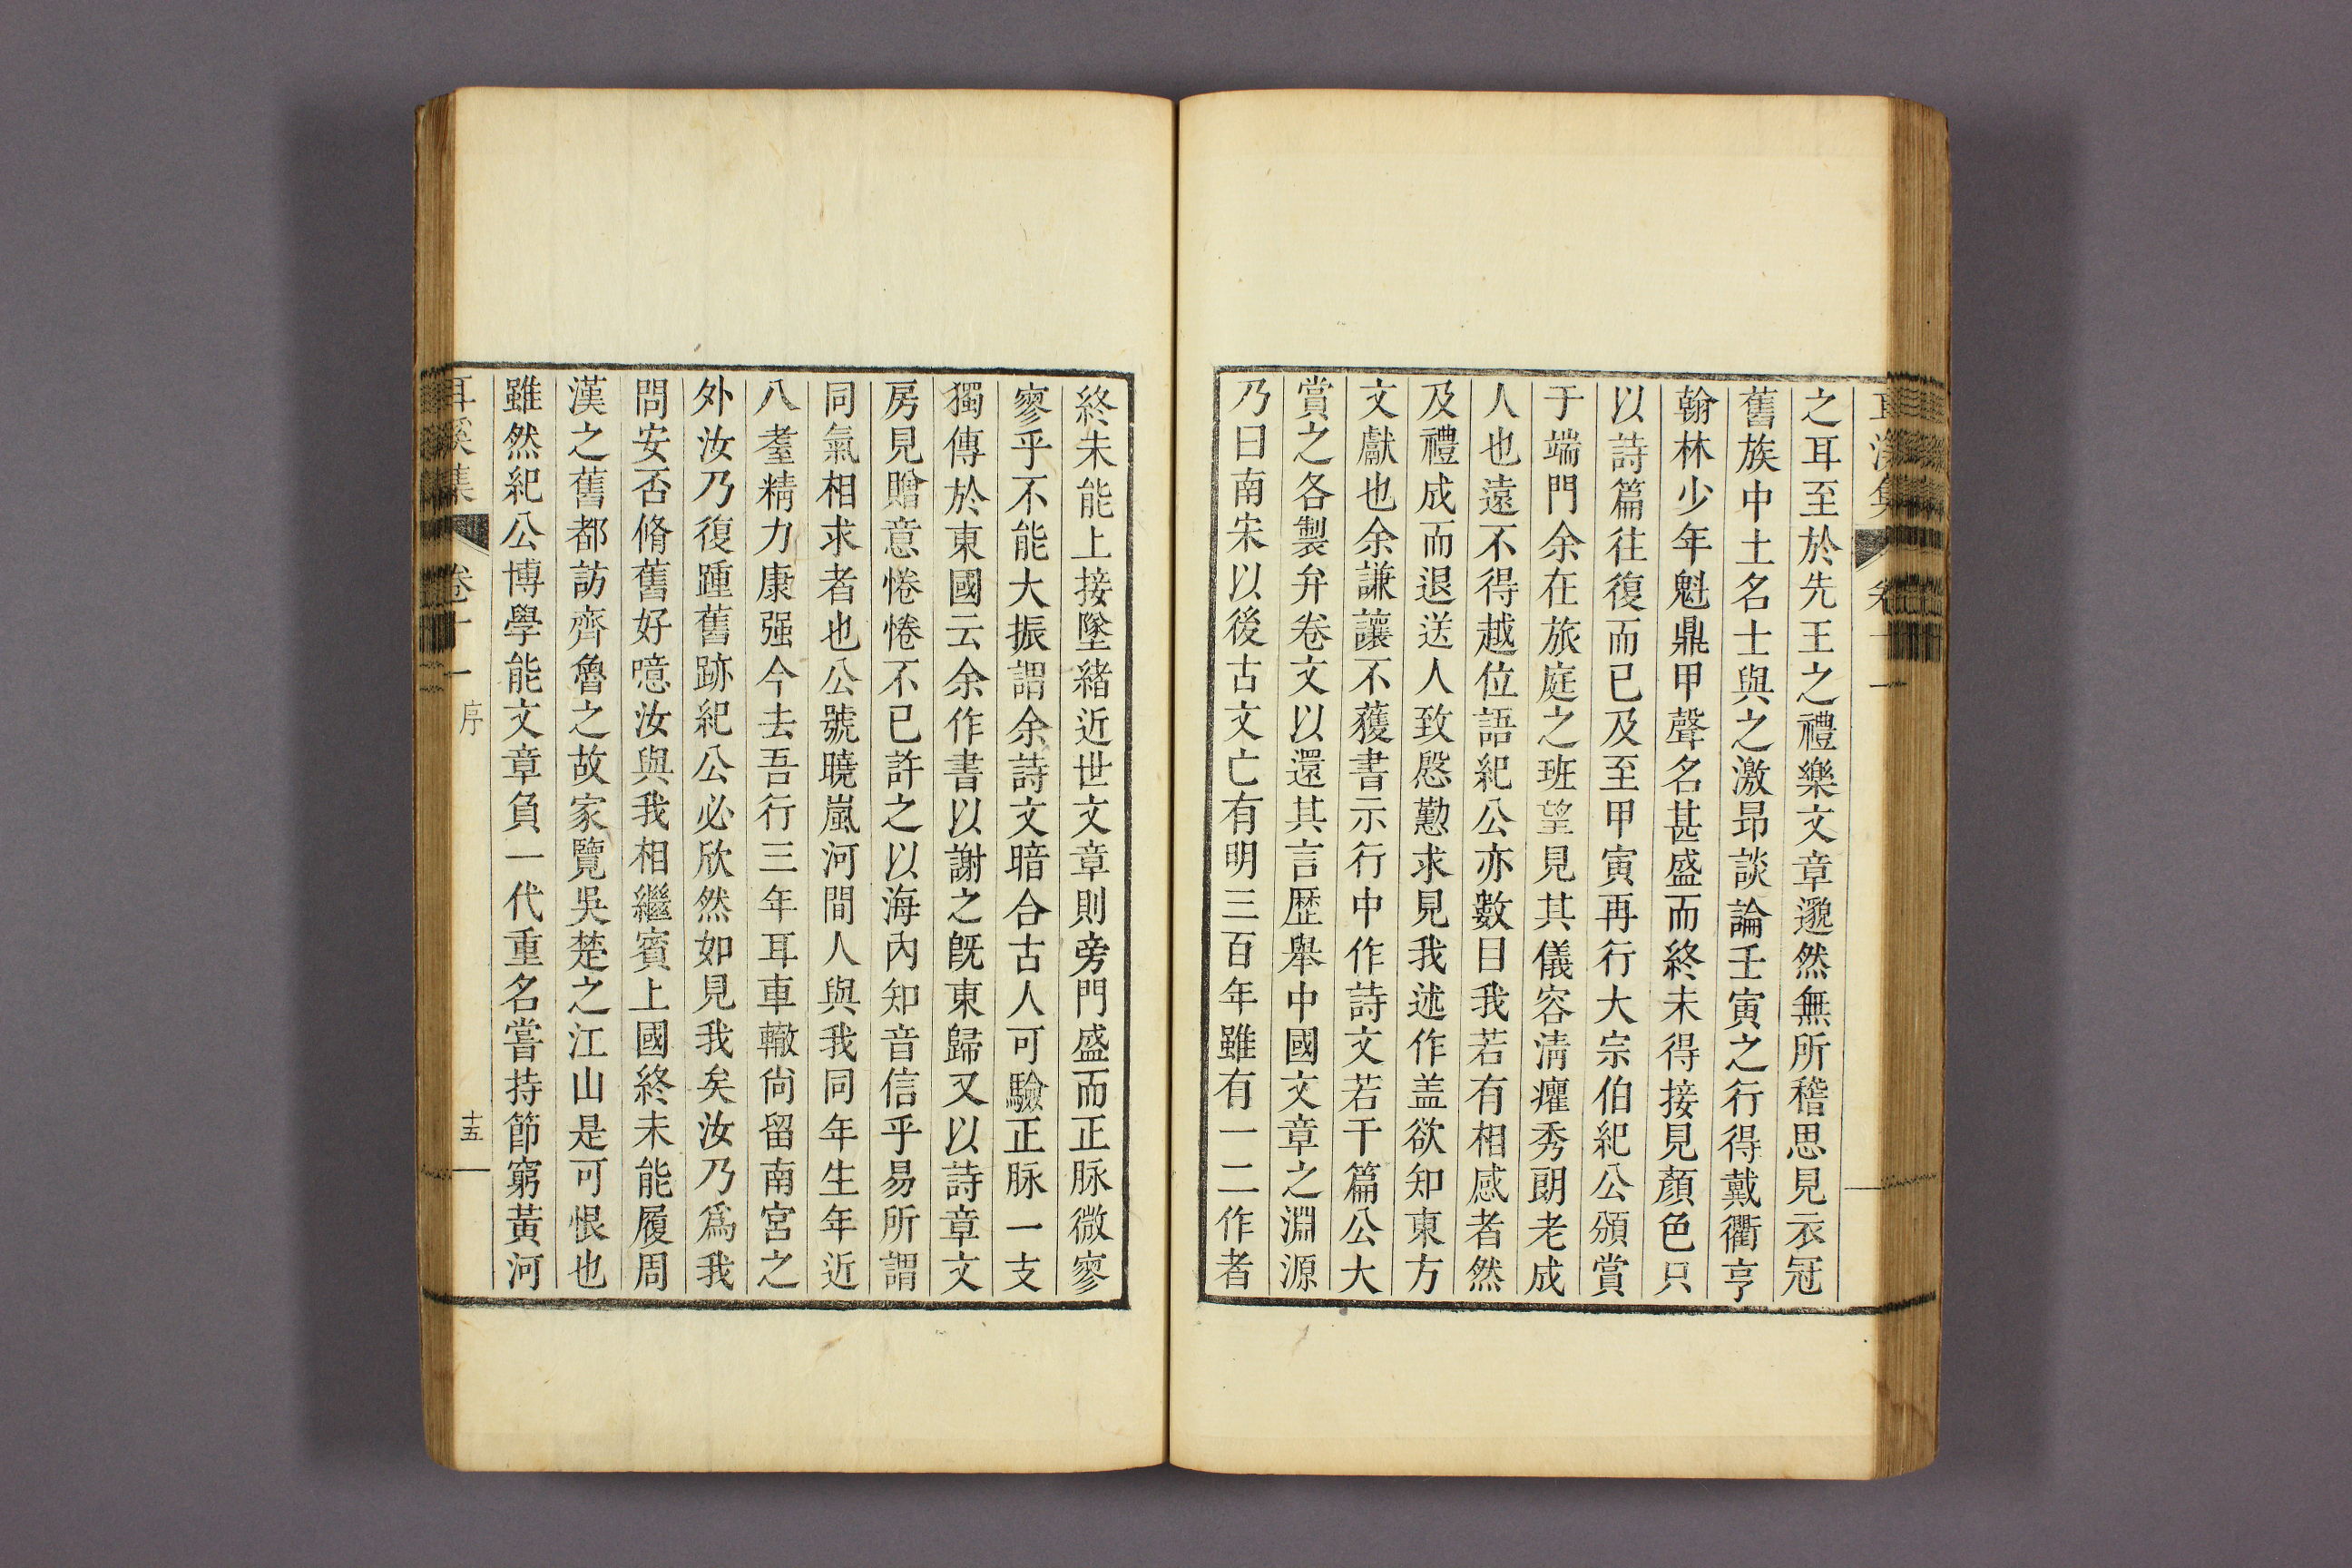 之耳至於先王之禮樂文章邈然無所稽思見衣冠
舊族中土名士與之激昂談論壬寅之行得戴衢亨
翰林少年魁鼎甲聲名甚盛而終未得接見顏色只
以詩篇往復而已及至甲寅再行大宗伯紀公頒賞
于端門余在旅庭之班望見其儀容淸癯秀朗老成
人也遠不得越位語紀公亦數目我若有相感者然
及禮成而退送人致慇懃求見我述作盖欲知東方
文獻也余謙讓不獲書示行中作詩文若干篇公大
賞之各製弁卷文以還其言歷舉中國文章之淵源
乃曰南宋以後古文亡有明三百年雖有一二作者
終未能上接墜緖近世文章則旁門盛而正脉微寥
寥乎不能大振謂余詩文暗合古人可驗正脉一支
獨傳於東國云余作書以謝之旣東歸又以詩章文
房見贈意惓惓不已許之以海內知音信乎易所謂
同氣相求者也公號曉嵐河間人與我同年生年近
八耋精力康强今去吾行三年耳車轍尙留南宮之
外汝乃復踵舊跡紀公必欣然如見我矣汝乃爲我
問安否脩舊好噫汝與我相繼賓上國終未能履周
漢之舊都訪齊魯之故家覽吳楚之江山是可恨也
雖然紀公博學能文章負一代重名嘗持節窮黃河
耳溪集 卷十一 序 十五